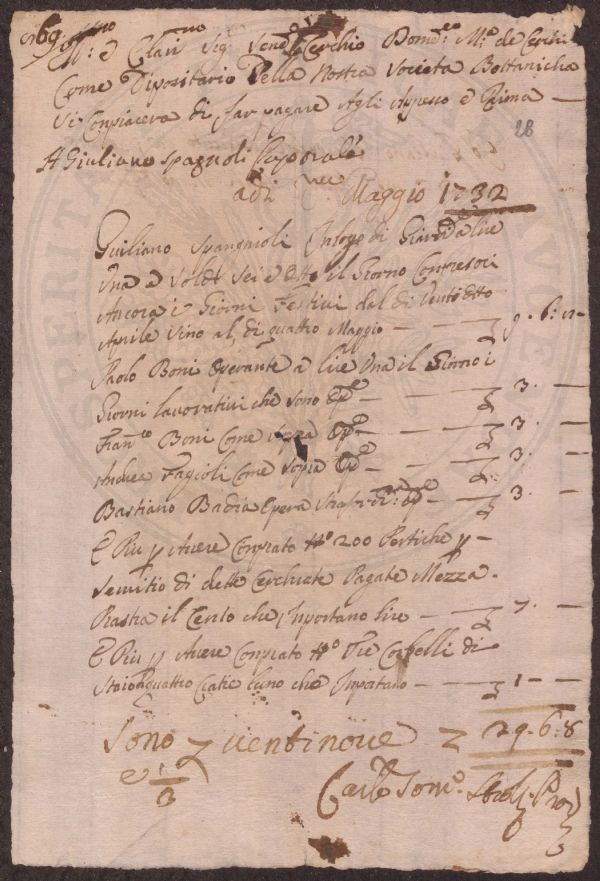 Ill:mo e Clari:mo Sig: Vend: Cerchio Dom:co M:a de
Come Dipositario Della Nostra Societa Bottanicha
Si Conpiacera di far pagare Agli Appesso e Prima —
28
A Giuliano Spagnoli Caporale
adi Maggio 1732
Guiliano Spangnioli di Giardi a lire
Una e Soldi Sei e Otto il Giorno Conpresoci
Ancora i Giorni Festivi dal di Vento Otto
Aprile Sino al di quattro Maggio — 9 - 6: —
Paolo Boni Operante a lire Una il Giorno i
Giorni lavorativi che Sono — 3 · —
Fran:co Boni Come Sopra — 3 · —
Andrea Fagioli Come Sopra — 3 · —
Bastiano Badia Opera — 3 · —
E Piu p Avere Conprato N:o 200 Pertiche p —
Servitio di dette Cerchiate Pagate Mezza -
Piastra il Cento che Inportano lire — 7 · —
E Piu p Avere Conprato N:o Tre Corbelli di
quattro Cratie luno che Inportano — 1 — —
Sono ventinove 29 - 6: 8
e 1/3
Carlo Tom:o